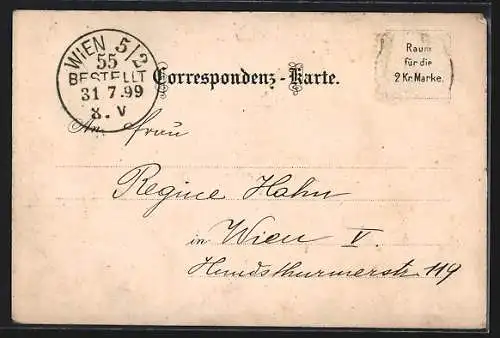 WIEN 5/2
55
BESTELLT
31 7.99
8. V
Correspondenz-Karte.
Raum
für die
2 Kr. Marke.
An Frau
Regine Hahn
in Wien V.
Hundsthurmerstr 119